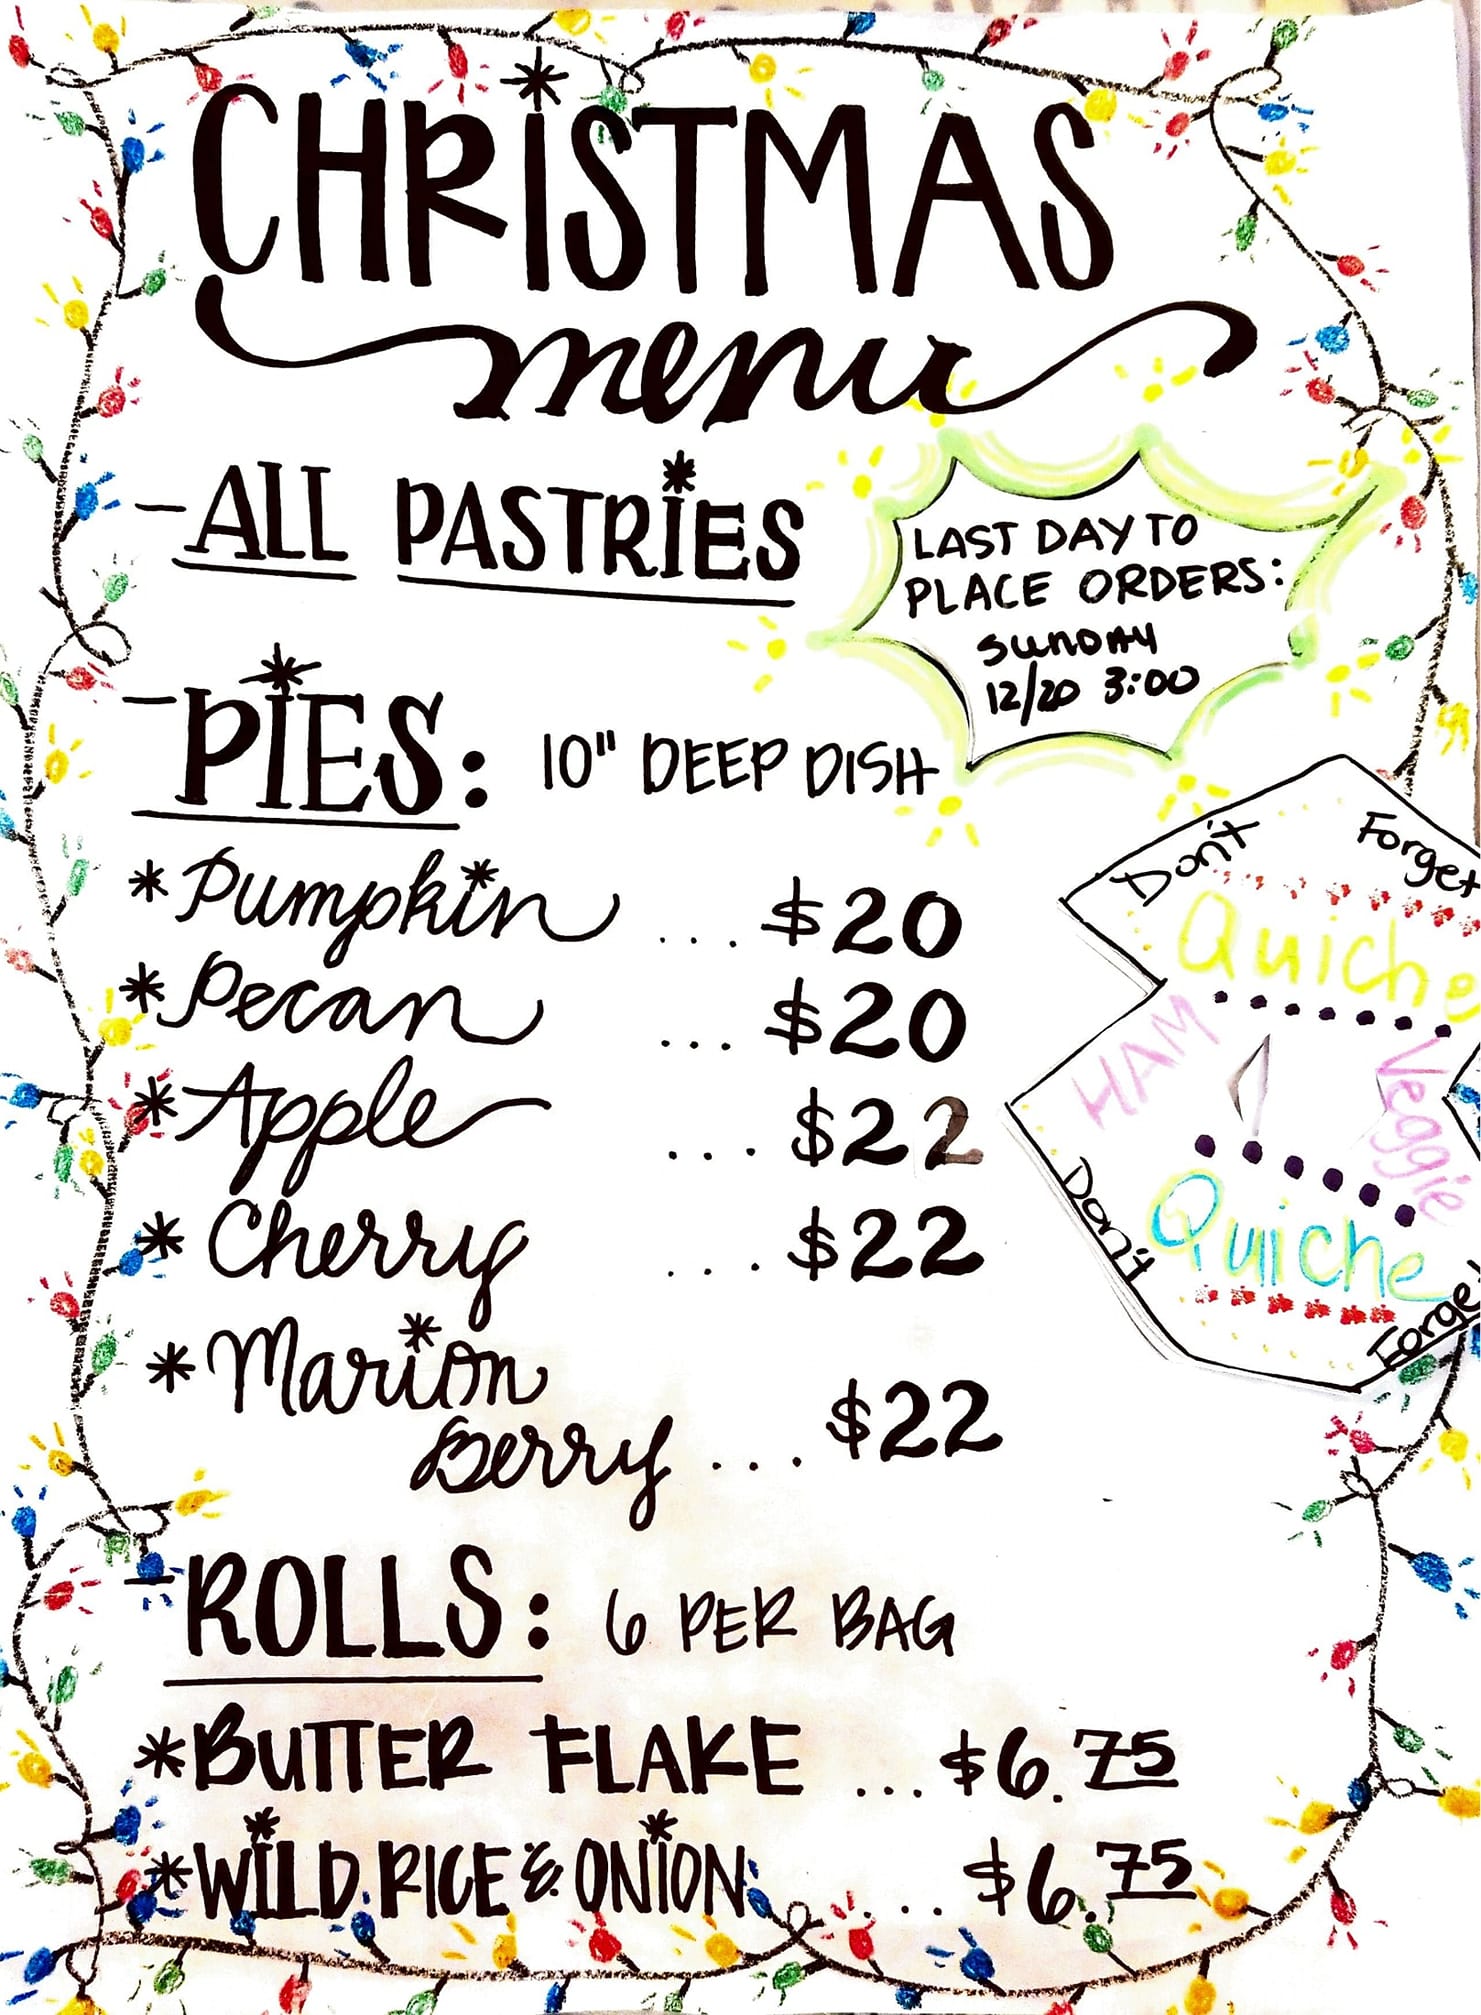 CHRISTMAS
menu
- ALL PASTRIES
LAST DAY TO
PLACE ORDERS:
SUNDAY
12/20 3:00
- PIES: 10" DEEP DISH
* Pumpkin ... $20
* Pecan ... $20
* Apple ... $22
* Cherry ... $22
* Marion
Berry ... $22
Don't Forget
Quiche
HAM
Veggie
Quiche
Don't Forge
- ROLLS: 6 PER BAG
* BUTTER FLAKE ... $6.75
* WILD RICE & ONION ... $6.75